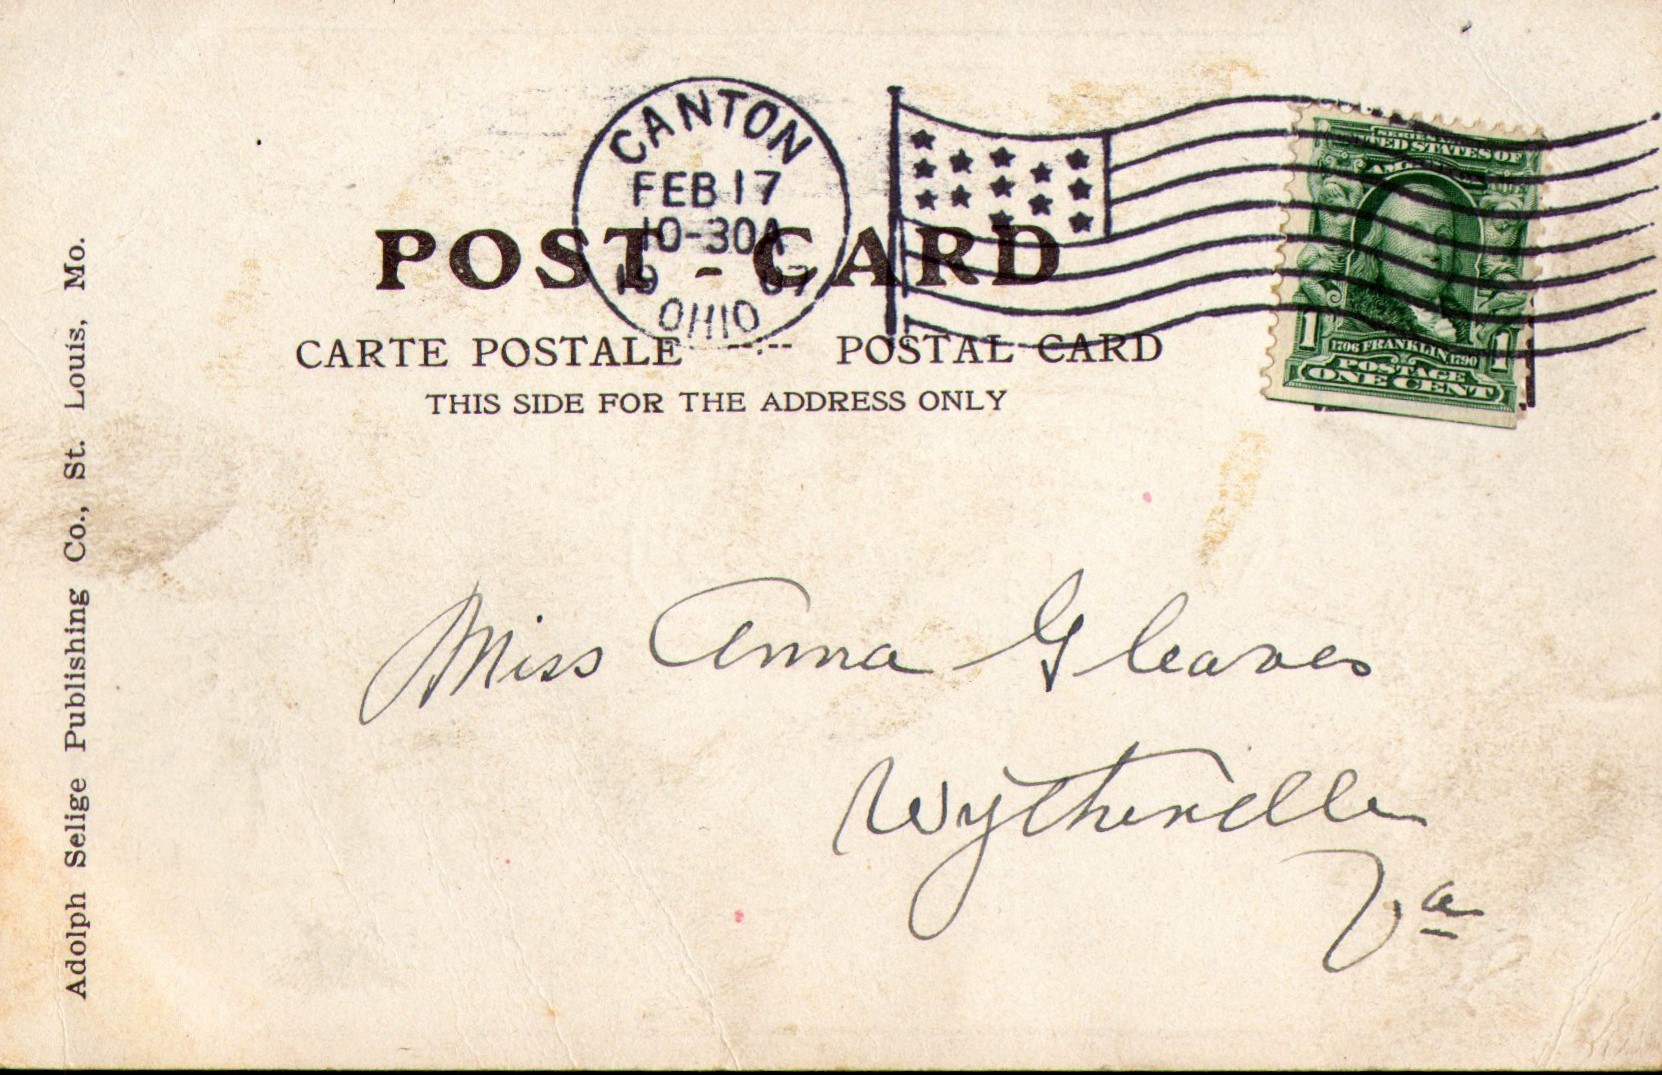 CANTON
FEB 17
10-30A
1907
OHIO
POST-CARD
CARTE POSTALE POSTAL CARD
THIS SIDE FOR THE ADDRESS ONLY
UNITED STATES OF
1706 FRANKLIN 1790
1 POSTAGE 1
ONE CENT
Adolph Selige Publishing Co., St. Louis, Mo.
Miss Anna Gleaves
Wytheville
Va